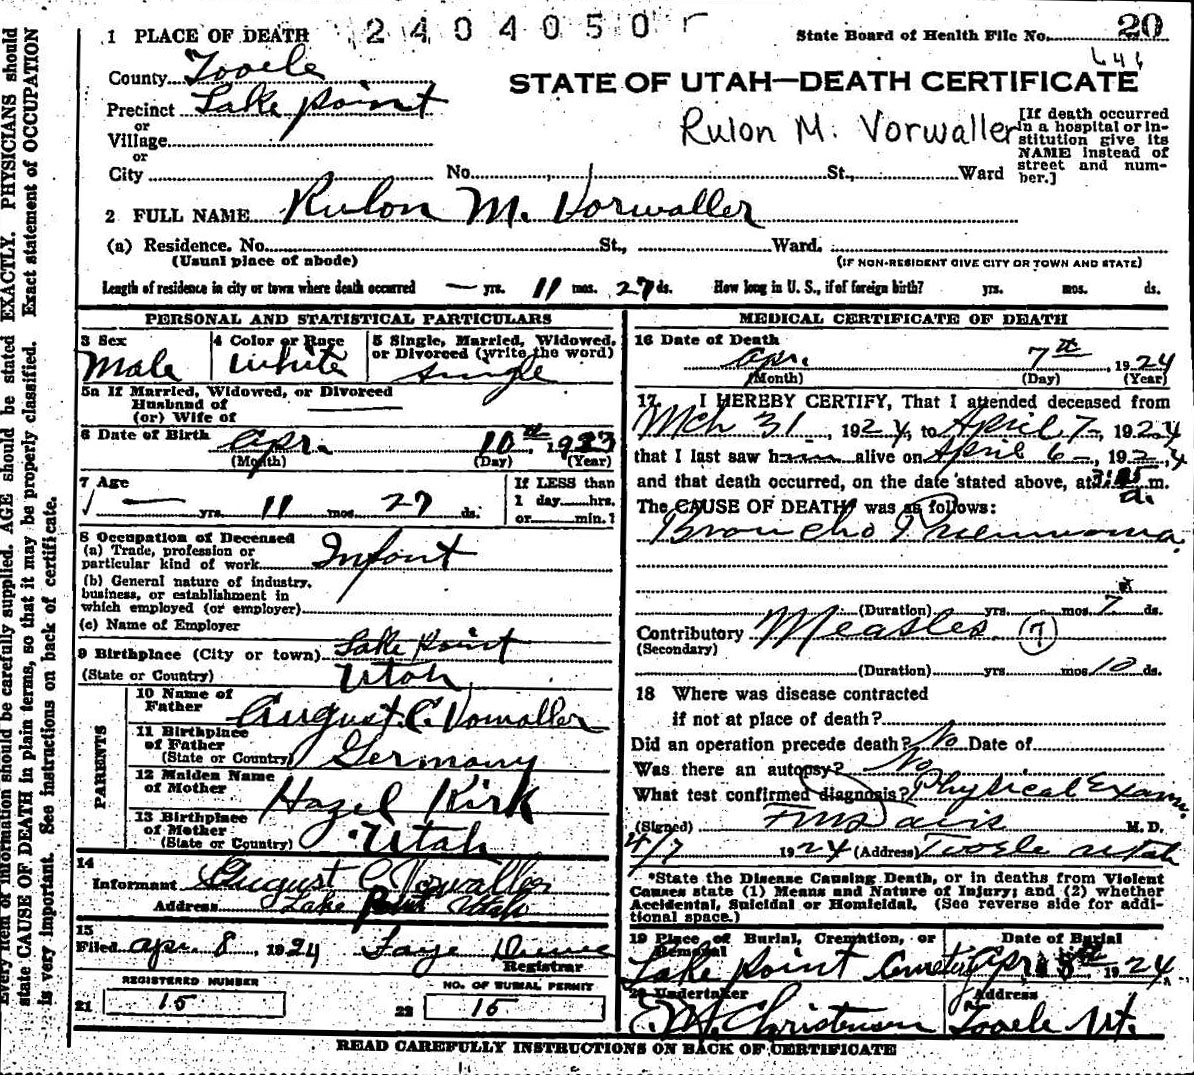 1 PLACE OF DEATH
2404050
State Board of Health File No. 20
County Tooele
STATE OF UTAH—DEATH CERTIFICATE
Precinct Lake Point
or
Village
or
City No. St., Ward
Rulon M. Vorwaller
[If death occurred
in a hospital or in-
stitution give its
NAME instead of
street and num-
ber.]
2 FULL NAME Rulon M. Vorwaller
(a) Residence. No. St., Ward.
(Usual place of abode) (IF NON-RESIDENT GIVE CITY OR TOWN AND STATE)
Length of residence in city or town where death occurred — yrs. 11 mos. 27 ds. How long in U. S., if of foreign birth? yrs. mos. ds.
PERSONAL AND STATISTICAL PARTICULARS
3 Sex
Male
4 Color or Race
White
5 Single, Married, Widowed,
or Divorced (write the word)
Single
5a If Married, Widowed, or Divorced
Husband of
(or) Wife of
6 Date of Birth Apr. 10th, 1923
(Month) (Day) (Year)
7 Age
— yrs. 11 mos. 27 ds.
If LESS than
1 day hrs.
or min.?
8 Occupation of Deceased
(a) Trade, profession or
particular kind of work Infant
(b) General nature of industry,
business, or establishment in
which employed (or employer)
(c) Name of Employer
9 Birthplace (City or town) Lake Point
(State or Country) Utah
PARENTS
10 Name of
Father August C. Vorwaller
11 Birthplace
of Father
(State or Country) Germany
12 Maiden Name
of Mother Hazel Kirk
13 Birthplace
of Mother
(State or Country) Utah
14
Informant August C Vorwaller
Address Lake Point Utah
15
Filed Apr. 8, 1924 Faye
Registrar
REGISTERED NUMBER
21 15
NO. OF BURIAL PERMIT
22 15
MEDICAL CERTIFICATE OF DEATH
16 Date of Death
Apr. 7th, 1924
(Month) (Day) (Year)
17. I HEREBY CERTIFY, That I attended deceased from
Mch 31, 1924, to April 7-, 1924
that I last saw him alive on April 6-, 1924
and that death occurred, on the date stated above, at m.
The CAUSE OF DEATH* was as follows:
Broncho Pneumonia.
(Duration) yrs. mos. 7 ds.
Contributory Measles (7)
(Secondary)
(Duration) yrs. mos. 10 ds.
18 Where was disease contracted
if not at place of death?
Did an operation precede death? No Date of
Was there an autopsy? No
What test confirmed diagnosis? Physical Exam.
(Signed) Davis M. D.
4/7 1924 (Address) Tooele Utah
*State the Disease Causing Death, or in deaths from Violent
Causes state (1) Means and Nature of Injury; and (2) whether
Accidental, Suicidal or Homicidal. (See reverse side for addi-
tional space.)
19 Place of Burial, Cremation, or
Removal
Lake Point Cemetery
Date of Burial
Apr. 8th 1924
20 Undertaker
Christensen
Address
Tooele Ut.
READ CAREFULLY INSTRUCTIONS ON BACK OF CERTIFICATE
Every item of information should be carefully supplied. AGE should be stated EXACTLY. PHYSICIANS should
state CAUSE OF DEATH in plain terms, so that it may be properly classified. Exact statement of OCCUPATION
is very important. See instructions on back of certificate.